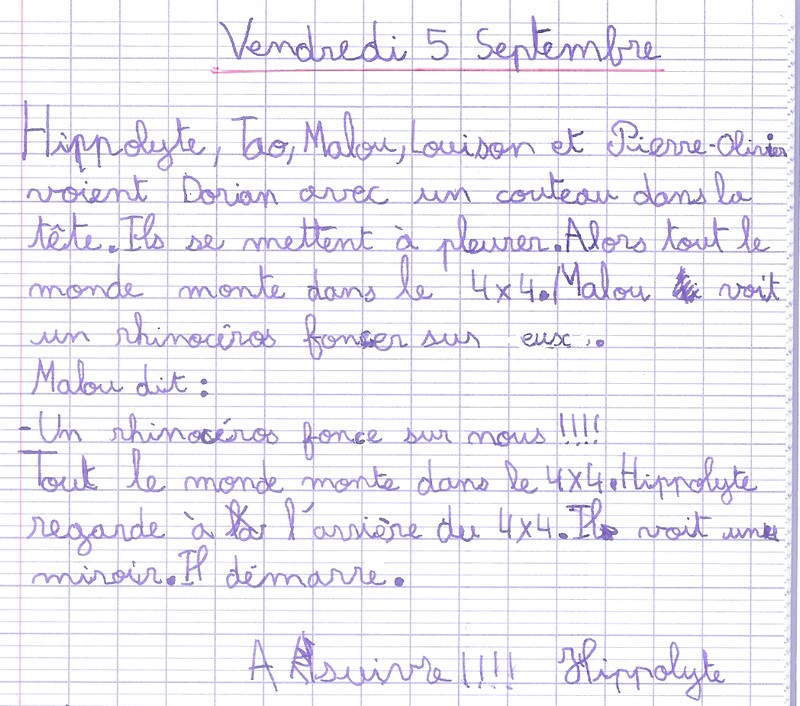 Vendredi 5 Septembre
Hippolyte, Tao, Malou, Louison et Pierre-Olivier
voient Dorian avec un couteau dans la
tête. Ils se mettent à pleurer. Alors tout le
monde monte dans le 4x4. Malou voit
un rhinocéros foncer sur eux.
Malou dit :
-Un rhinocéros fonce sur nous !!!!
Tout le monde monte dans le 4x4. Hippolyte
regarde à l'arrière du 4x4. Il voit un
miroir. Il démarre.
A suivre !!!! Hippolyte